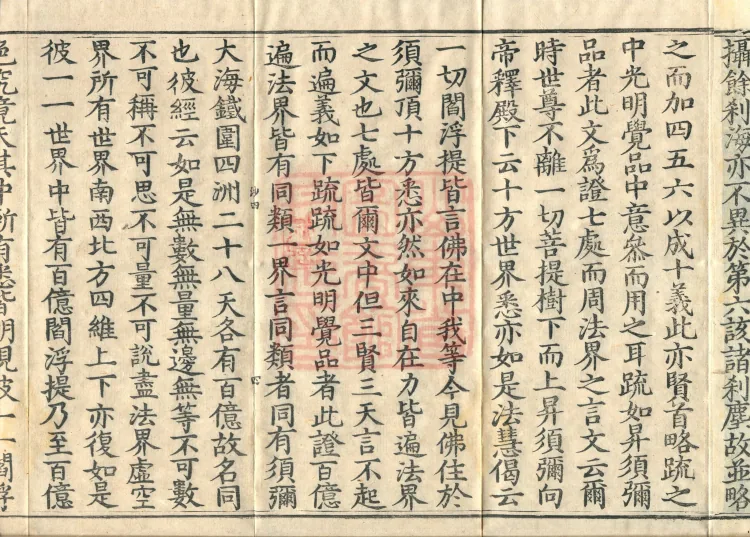 攝餘刹海亦不異於第六該諸刹塵故並略
之而加四五六以成十義此亦賢首略疏之
中光明覺品中意叅而用之耳疏如昇須彌
品者此文爲證七處而周法界之言文云爾
時世尊不離一切菩提樹下而上昇須彌向
帝釋殿下云十方世界悉亦如是法慧偈云
一切閻浮提皆言佛在中我等今見佛住於
須彌頂十方悉亦然如來自在力皆遍法界
之文也七處皆爾文中但三賢三天言不起
而遍義如下疏疏如光明覺品者此證百億
遍法界皆有同類一界言同類者同有須彌
鈔四
大海鐵圍四洲二十八天各有百億故名同
也彼經云如是無數無量無邊無等不可數
不可稱不可思不可量不可說盡法界虛空
界所有世界南西北方四維上下亦復如是
彼一一世界中皆有百億閻浮提乃至百億
色究竟天其中所有悉皆明現彼一一閻浮